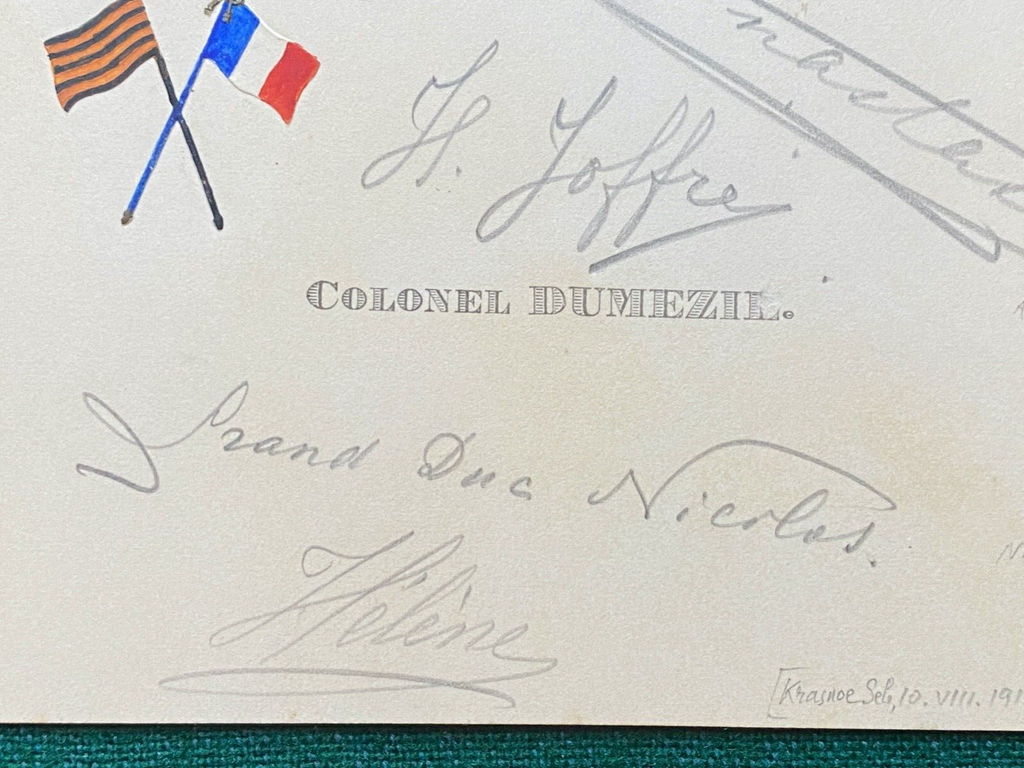 H. Joffre
COLONEL DUMEZIL.
Grand Duc Nicolas.
Hélène
[Krasnoe Selo, 10. VIII. 191